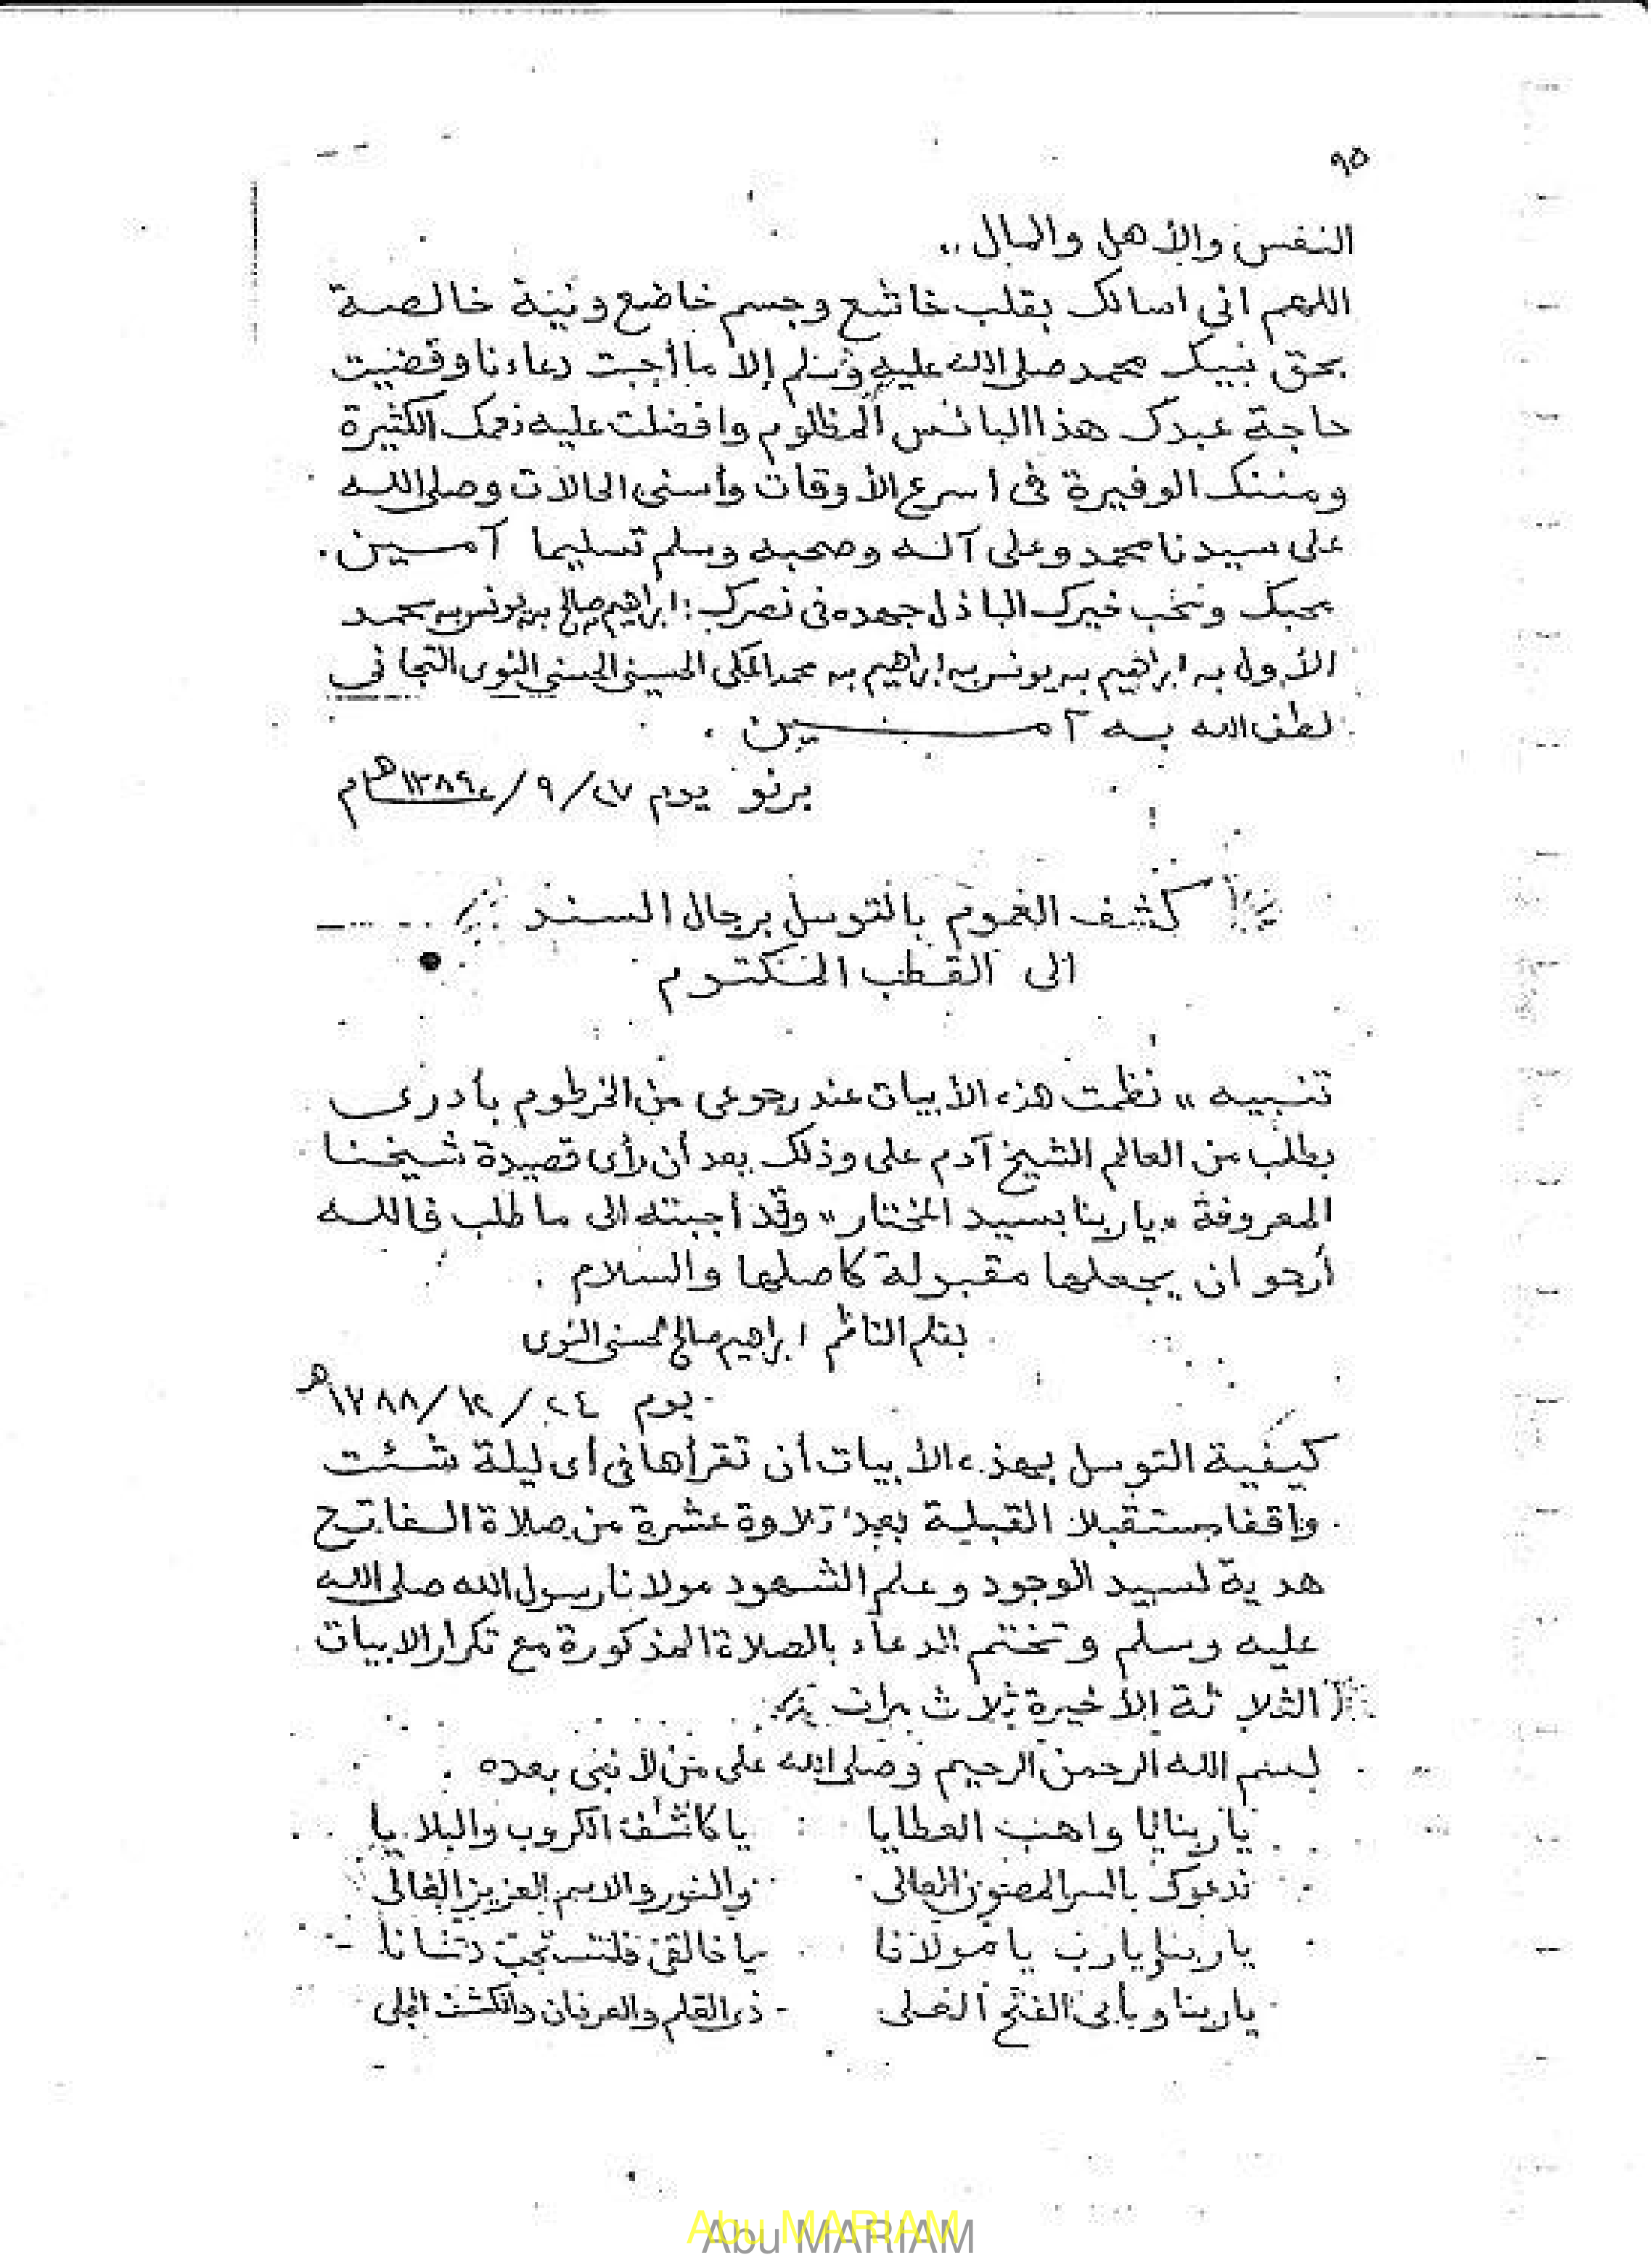 ٩٥
النفس والأهل والمال ..
اللهم انى اسالك بقلب خاشع وجسم خاضع ونية خالصة
بحق نبيك محمد صلى الله عليه وسلم إلا ما أجبت دعاءنا وقضيت
حاجة عبدك هذا البائس المظلوم وافضلت عليه نعمك الكثيرة
ومننك الوفيرة فى اسرع الأوقات وأسنى الحالات وصلى الله
على سيدنا محمد وعلى آله وصحبه وسلم تسليما آمين .
بحبك وتحب خيرك الباذل جهده فى نصرك : ابراهيم صالح بن يونس بن محمد
الأول بن ابراهيم بن يونس بن ابراهيم بن محمد المكى الحسينى الحسنى النوى التجانى
لطف الله به آمين .
برنو يوم ٢٧ / ٩ / ١٣٨٩هـ م
كشف الغموم بالتوسل برجال السند
الى القطب المكتوم
تنبيه ،، نظمت هذه الأبيات عند رجوعى من الخرطوم بأدرى
بطلب من العالم الشيخ آدم على وذلك بعد أن رأى قصيدة شيخنا
المعروفة "يا ربنا بسيد المختار" وقد أجبته الى ما طلب فالله
أرجو ان يجعلها مقبولة كاصلها والسلام .
بقلم الناظم ابراهيم صالح الحسنى النوى
يوم ٢٤ / ١٢ / ١٣٨٨هـ
كيفية التوسل بهذه الأبيات أن تقرأها فى أى ليلة شئت
واقفا مستقبلا القبلة بعد تلاوة عشرة من صلاة الفاتح
هدية لسيد الوجود وعلم الشهود مولانا رسول الله صلى الله
عليه وسلم وتختم الدعاء بالصلاة المذكورة مع تكرار الابيات
الثلاثة الأخيرة ثلاث مرات
بسم الله الرحمن الرحيم وصلى الله على من لا نبى بعده .
يا ربنا يا واهب العطايا : يا كاشف الكروب والبلايا
ندعوك بالسر المصون العالى والنور والاسم العزيز الغالى
يا ربنا يا رب يا مولانا يا خالقى فلتستجب دعانا
يا ربنا وبأبى الفتح العلى - ذى القلم والعرفان والكشف الجلى
Abu MARIAM
Abu MARIAM